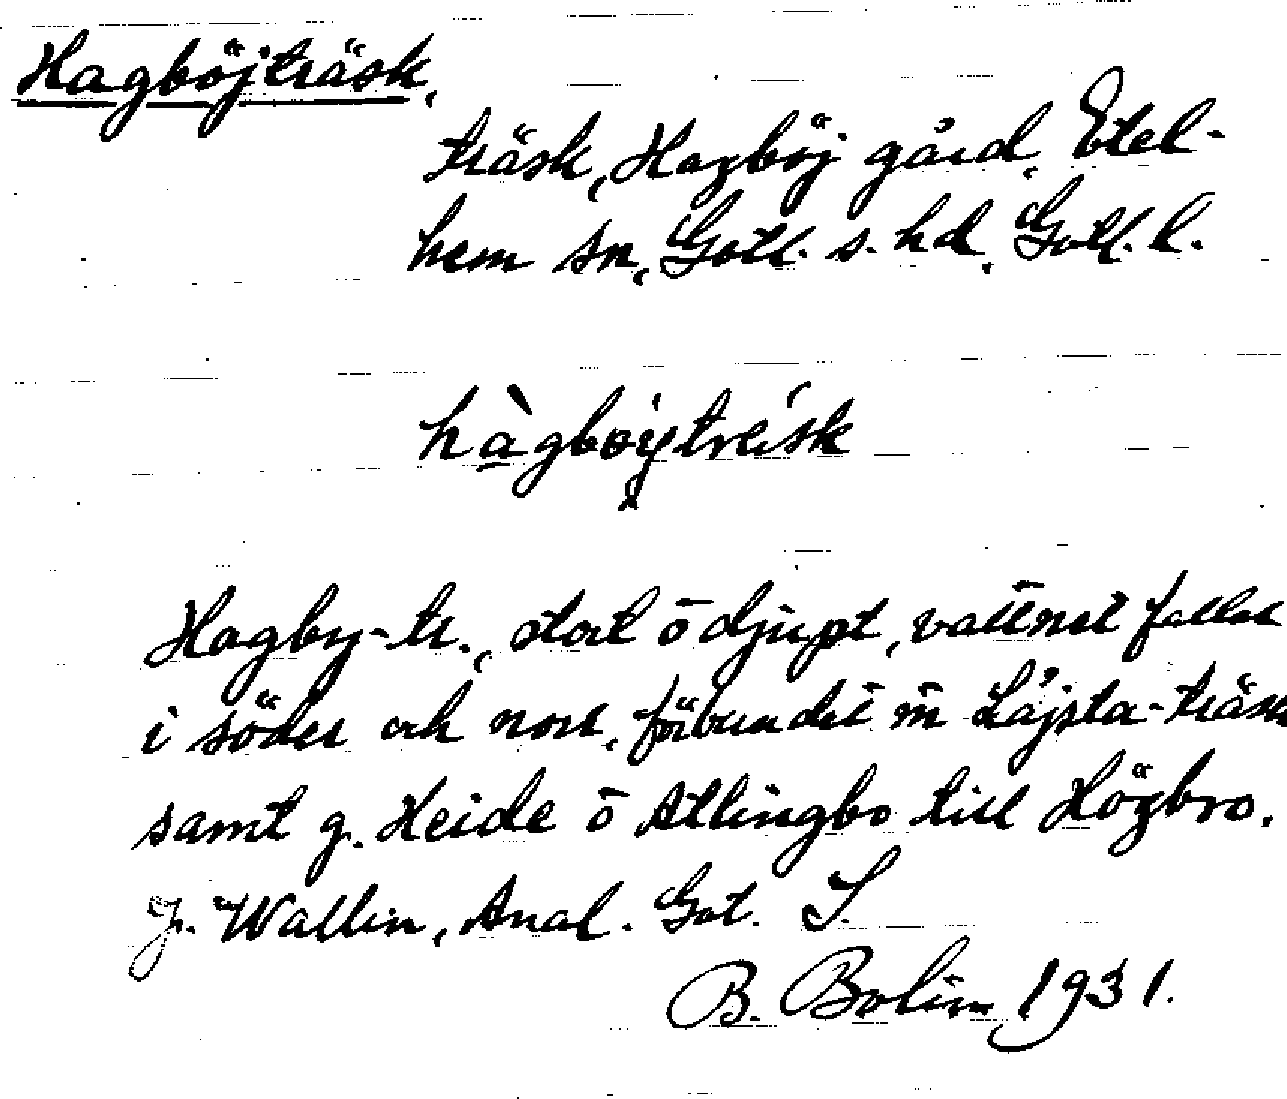 Hagböjträsk,
träsk, Hagböj gård, Etel-
hem sn, Gotl. s. hd, Gotl. l.
hàgböjtréisk
Hagby-tr., stort ō djupt, vattnet faller
i söder och norr, förbundet m̄ Låjsta-träsk
samt g. Heide ō Atlingbo till Högbro.
J. Wallin, Anal. Got. I.
B. Bolin 1931.